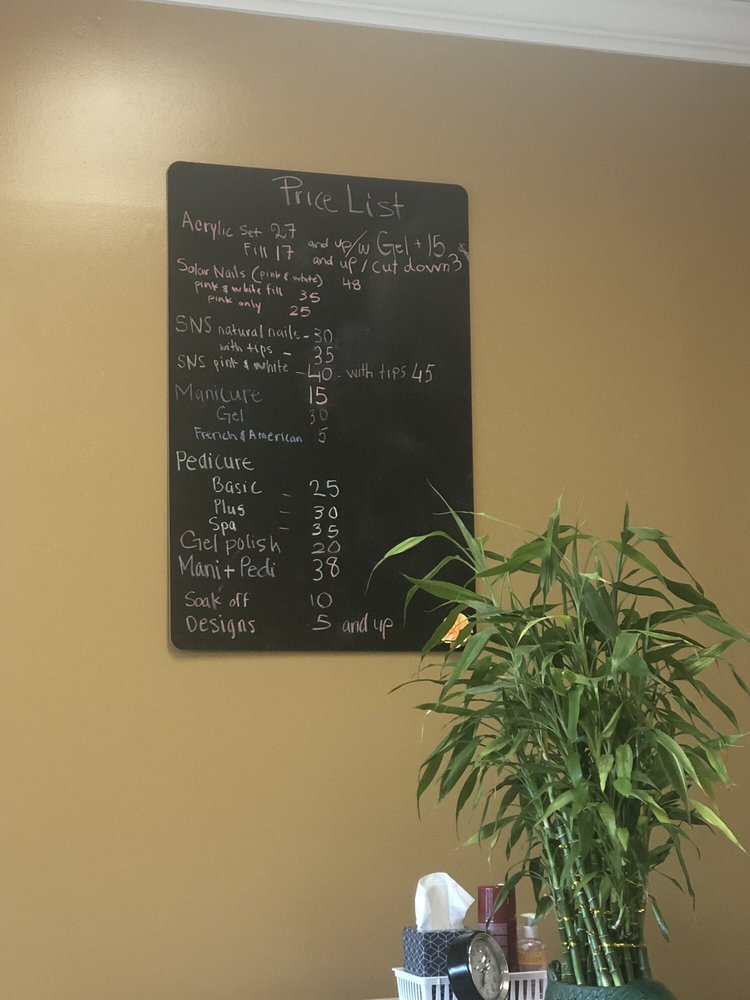 Price List
Acrylic Set 27 and up/w Gel + 15
Fill 17 and up / cut down 3
Solar Nails (pink & white) 48
pink & white fill 35
pink only 25
SNS natural nails - 30
with tips - 35
SNS pink & white - 40 - with tips 45
Manicure 15
Gel 30
French & American 5
Pedicure
Basic - 25
Plus - 30
Spa - 35
Gel polish 20
Mani + Pedi 38
Soak off 10
Designs 5 and up